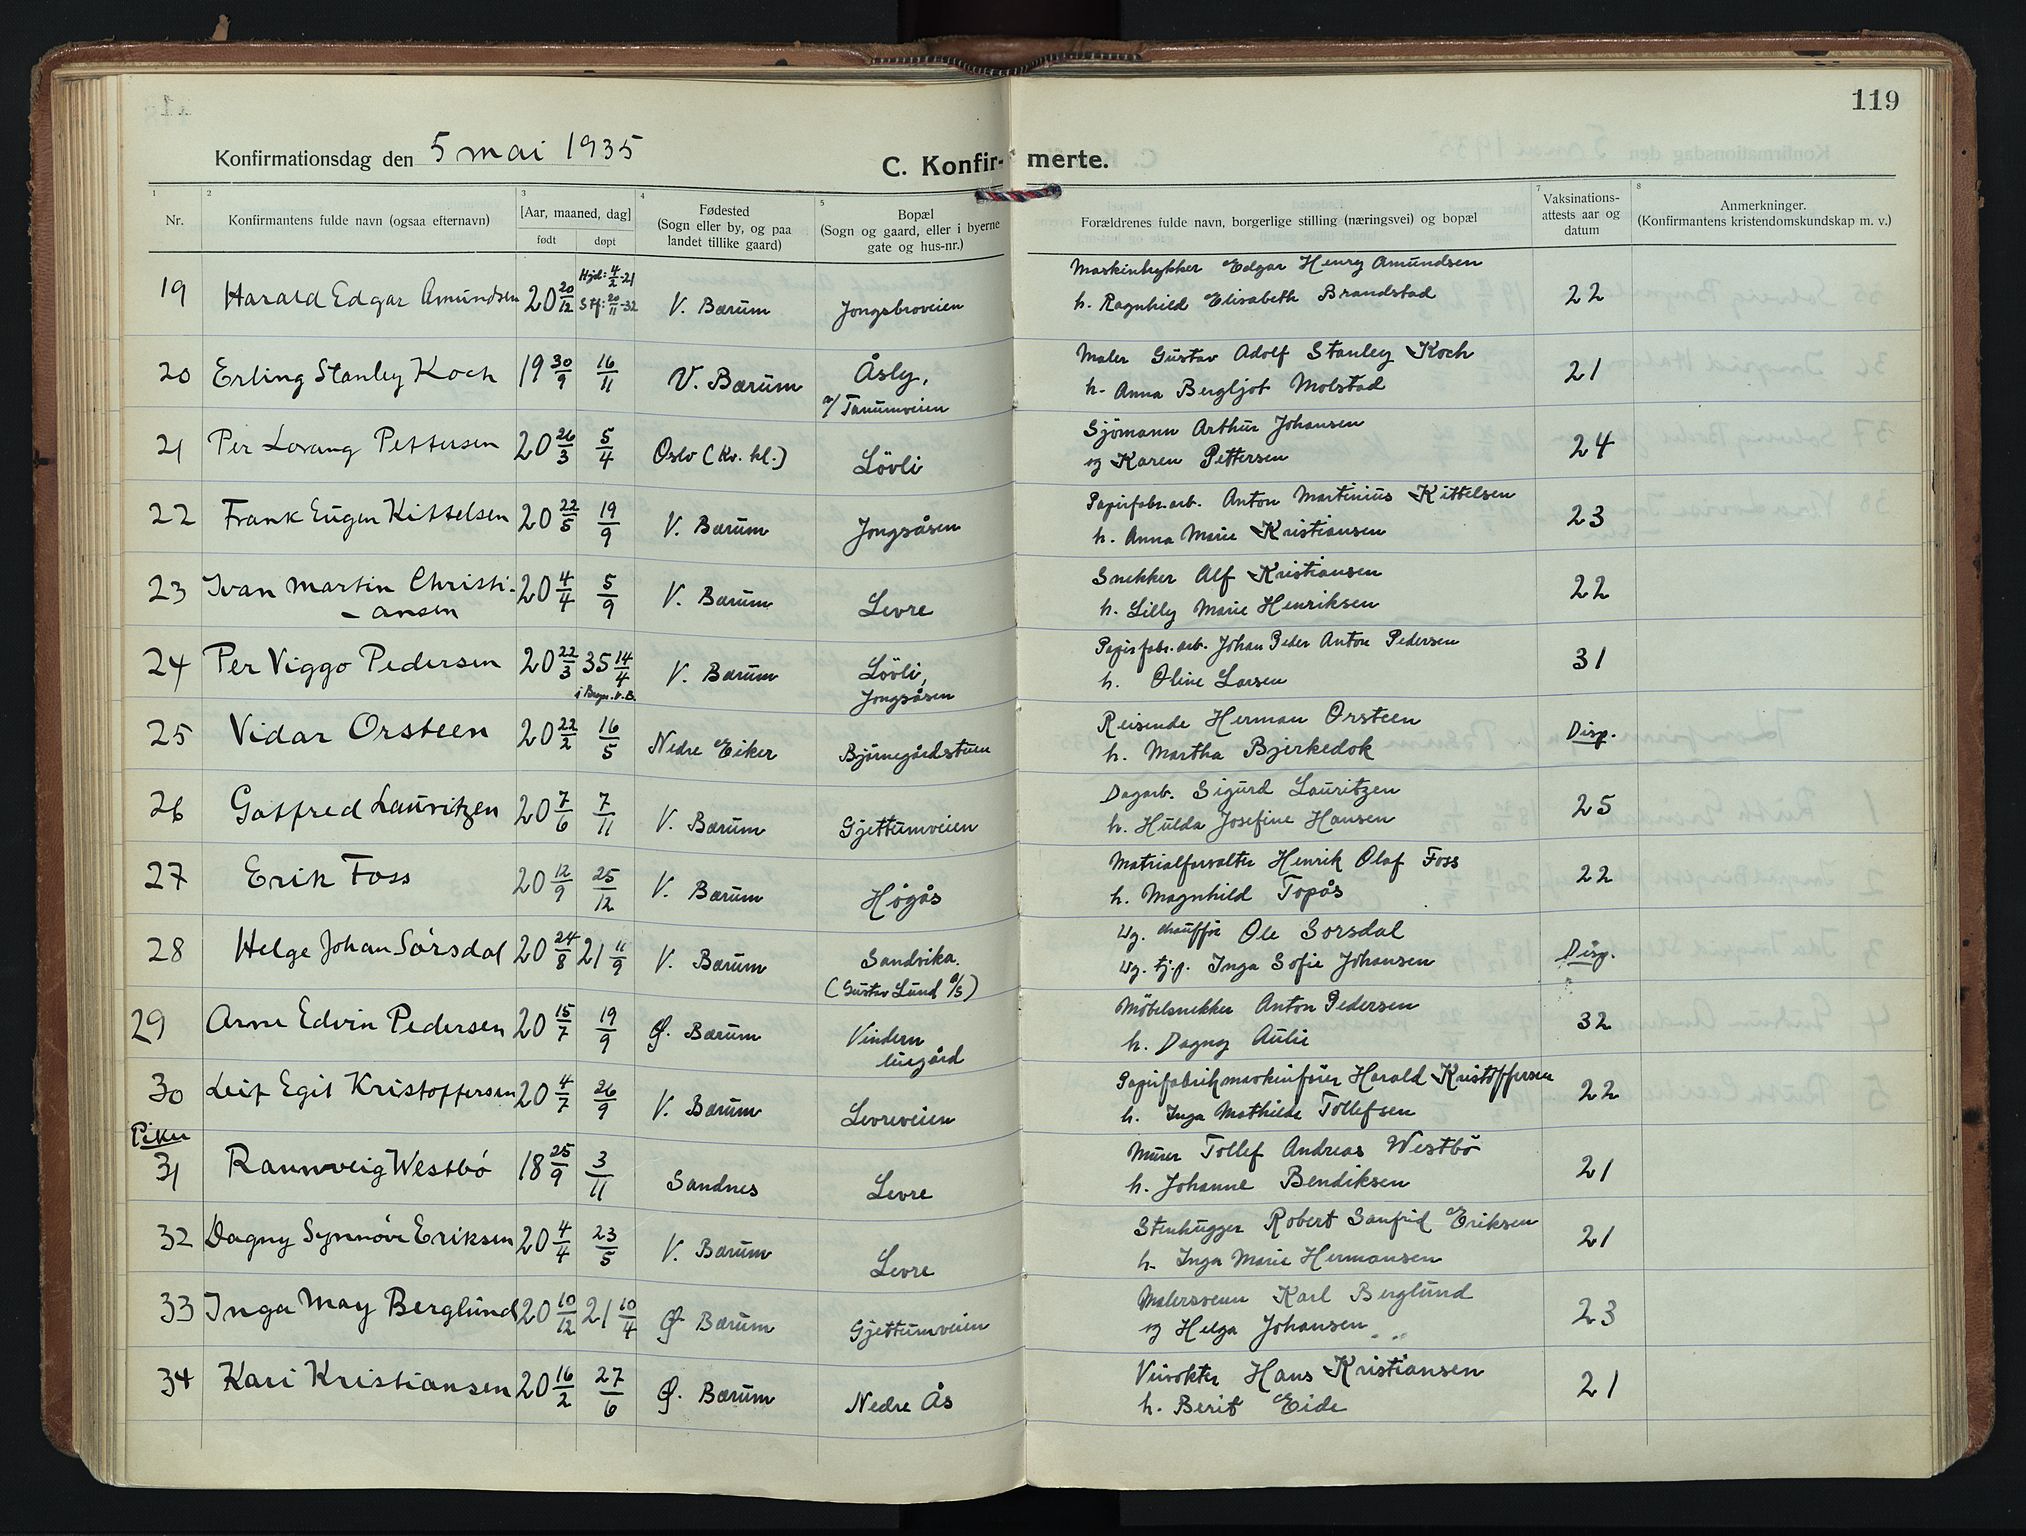 119
Konfirmationsdag den 5 mai 1935
C. Konfirmerte.
1 2 3 4 5 7 8
Nr.
Konfirmantens fulde navn (ogsaa efternavn)
[Aar, maaned, dag]
født døpt
Fødested
(Sogn eller by, og paa
landet tillike gaard)
Bopæl
(Sogn og gaard, eller i byerne
gate og hus-nr.)
Forældrenes fulde navn, borgerlige stilling (næringsvei) og bopæl
Vaksinations-
attests aar og
datum
Anmerkninger.
(Konfirmantens kristendomskundskap m. v.)
19 Harald Edgar Amundsen 20 20/12 Hjd: 4/2-21 Stf: 20/11-32 V. Bærum Jongsbroveien
Maskintrykker Edgar Henry Amundsen
h. Ragnhild Elisabeth Brandstad 22
20 Erling Stanley Koch 19 30/9 16/11 V. Bærum Åsly,
v/ Tanumveien
Maler Gustav Adolf Stanley Koch
h. Anna Bergljot Molstad 21
21 Per Lovang Pettersen 20 26/3 5/4 Oslo (Kv. kl.) Lövli
Sjömann Arthur Johansen
og Karen Pettersen 24
22 Frank Eugen Kittelsen 20 22/5 19/9 V. Bærum Jongsåsen
Papirfabr.arb. Anton Martinius Kittelsen
h. Anna Marie Kristiansen 23
23 Ivan Martin Christi-
- ansen 20 4/4 5/9 V. Bærum Levre
Snekker Alf Kristiansen
h. Lilly Marie Henriksen 22
24 Per Viggo Pedersen 20 22/3 35 14/4 V. Bærum Lövli,
Jongsåsen
Papirfabr.arb. Johan Peder Anton Pedersen
h. Oline Larsen 31
25 Vidar Orsteen 20 22/2 16/5 Nedre Eiker Bjørnegårdstuen
Reisende Herman Orsteen
h. Martha Bjerkedok Disp.
26 Gotfred Lauritzen 20 7/6 7/11 V. Bærum Gjettumveien
Dagarb. Sigurd Lauritzen
h. Hulda Josefine Hansen 25
27 Erik Foss 20 12/9 25/12 V. Bærum Høgås
Matrialforvalter Henrik Olaf Foss
h. Magnhild Topås 22
28 Helge Johan Sørsdal 20 24/8 21 11/9 V. Bærum Sandvika.
(Gustav Lund A/S)
Ug. chauffør Ole Sorsdal
Ug. tj.p. Inga Sofie Johansen Disp.
29 Arne Edvin Pedersen 20 15/7 19/9 Ø. Bærum Vindern
leirgård
Møbelsnekker Anton Pedersen
h. Dagny Aulie 32
30 Leif Egil Kristoffersen 20 4/7 26/9 V. Bærum Levreveien
Papirfabrikmaskinfører Harald Kristoffersen
h. Inga Mathilde Tollefsen 22
Piker
31 Rannveig Westbø 18 25/9 3/11 Sandnes Levre
Murer Tollef Andreas Westbø
h. Johanne Bendiksen 21
32 Dagny Synnøve Eriksen 20 4/4 23/5 V. Bærum Levre
Stenhugger Robert Sanfrid Eriksen
h. Inga Marie Hermansen 21
33 Inga May Berglund 20 10/12 21 10/4 Ø. Bærum Gjettumveien
Malersvenn Karl Berglund
og Helga Johansen 23
34 Kari Kristiansen 20 16/2 27/6 Ø. Bærum Nedre Ås
Virokter Hans Kristiansen
h. Berit Eide 21